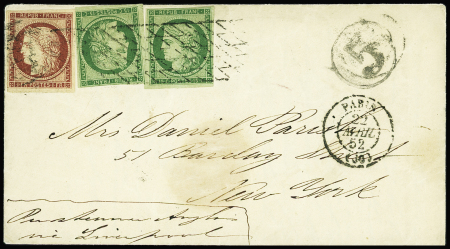 REPUB. FRANC. REPUB. FRANC. REPUB. FRANC.
1 F. POSTES 1 FR.
PARIS
22
AVRIL
52
(60)
Mrs Daniel Paris
51 Barclay Street
New York
via Liverpool